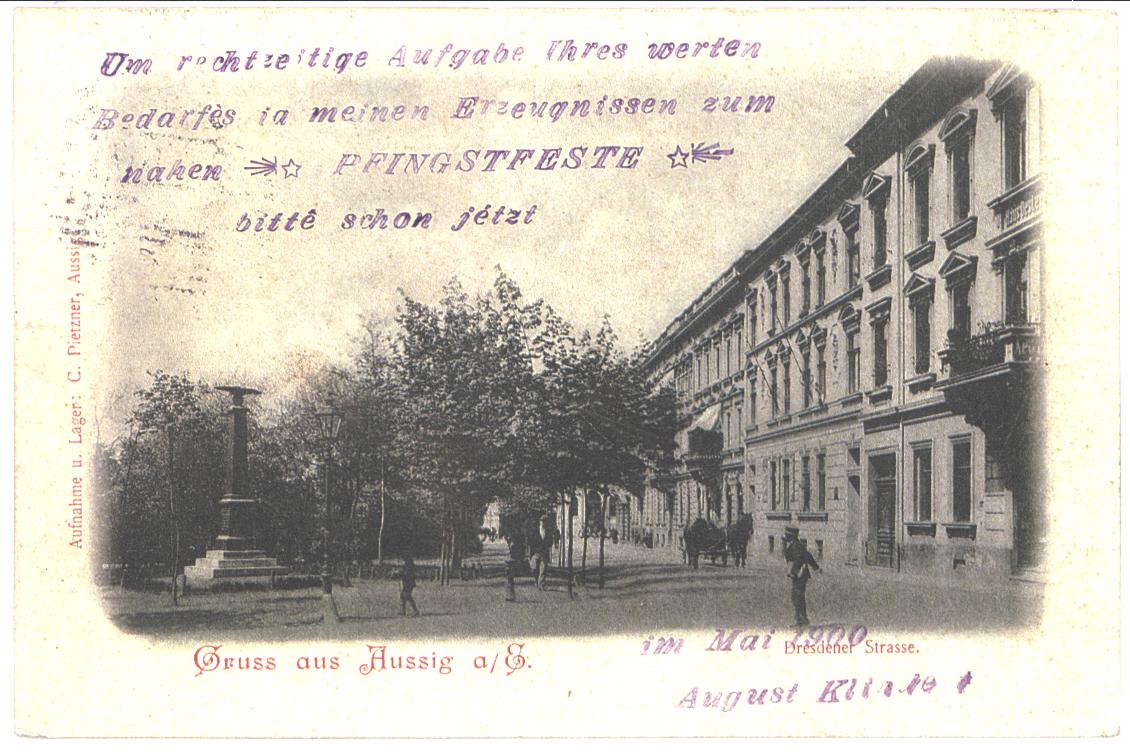 Um rechtzeitige Aufgabe Ihres werten
Bedarfes in meinen Erzeugnissen zum
nahen PFINGSTFESTE
bitte schon jetzt
Aufnahme u. Lager: C. Pietzner, Aussig
im Mai 1900
Gruss aus Aussig a/E.
Dresdener Strasse.
August